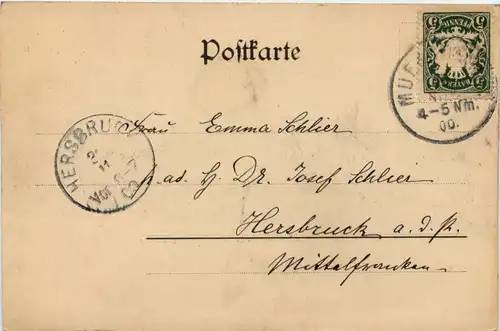 Postkarte
5 PFENNIG 5
BAYERN
MUE
4-5 Nm.
00.
HERSBRUCK
Vor.
00
Frau Emma Schlier
p. ad. H. Dr. Josef Schlier
Hersbruck a. d. P.
Mittelfranken